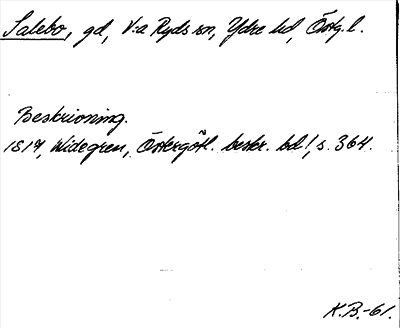 Salebo, gd, V:a Ryds sn, Ydre hd, Östg. l.
Beskrivning.
1817, Widegren, Östergötl. beskr. bd 1, s. 364.
K.B.-61.